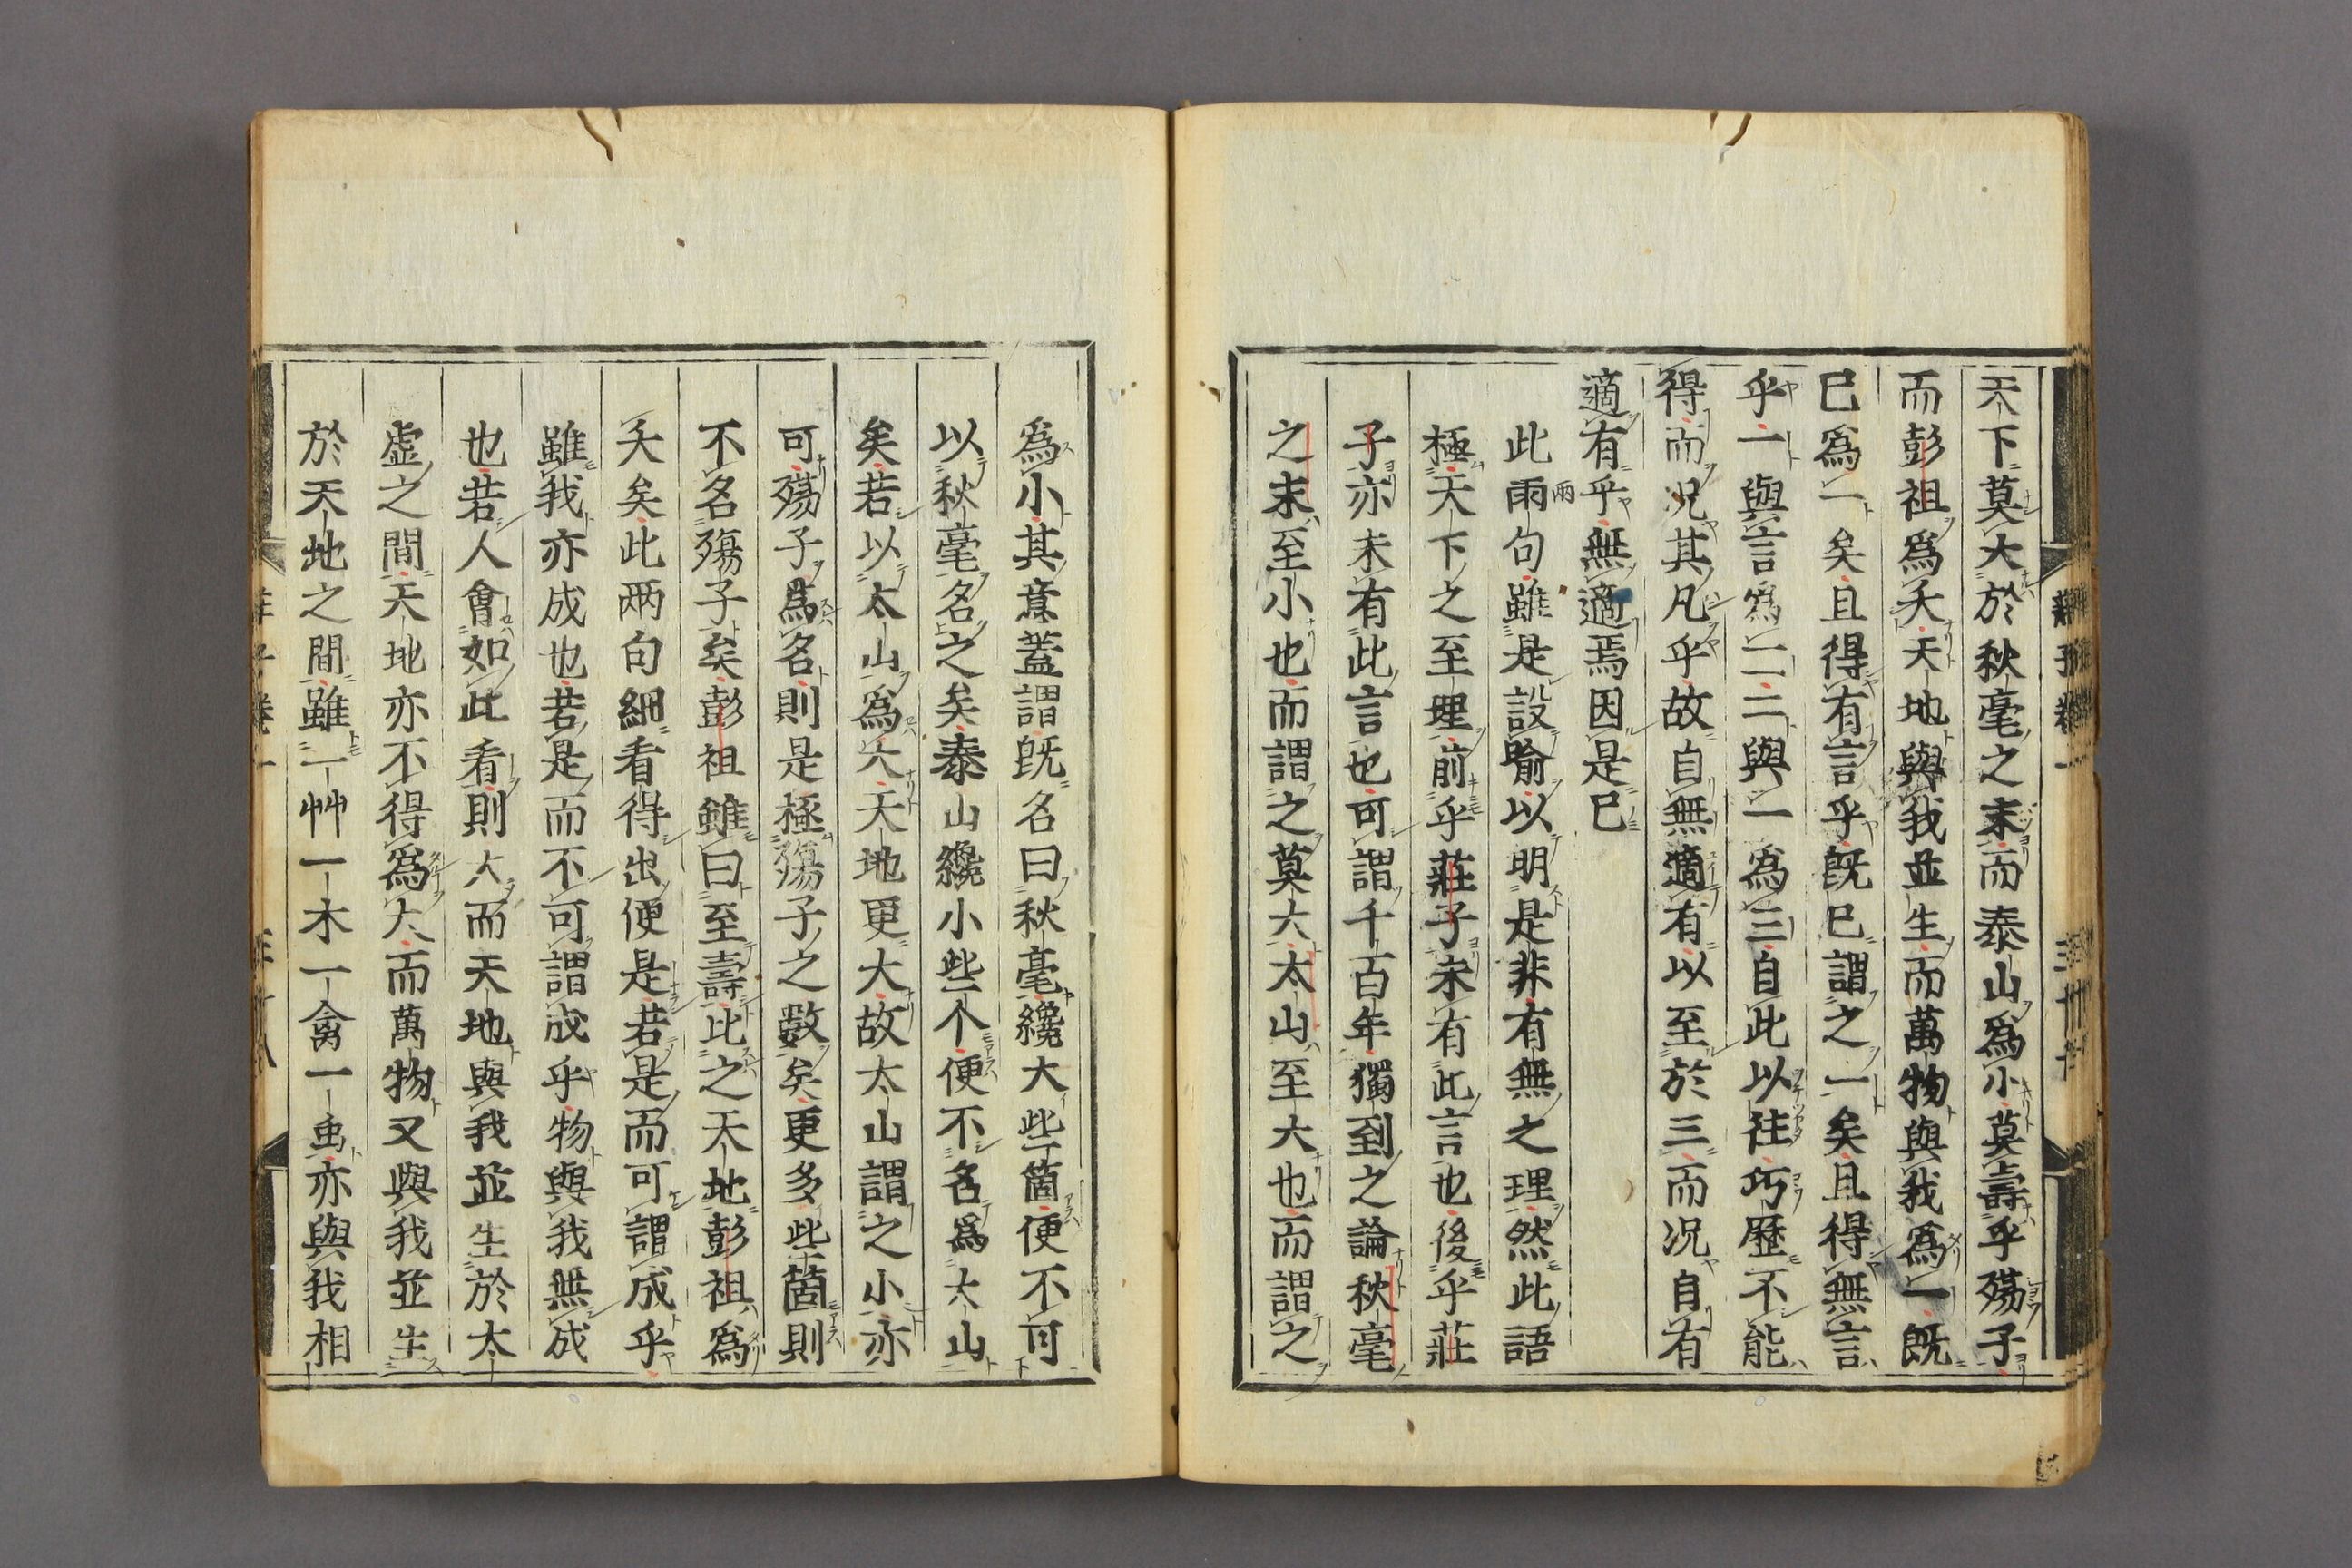 天下莫大於秋毫之末而泰山爲小莫壽乎殤子
而彭祖爲夭天地與我並生而萬物與我爲一既
已爲一矣且得有言乎既已謂之一矣且得無言
乎一與言爲二二與一爲三自此以往巧歷不能
得而况其凡乎故自無適有以至於三而况自有
適有乎無適焉因是已
此兩句雖是設喻以明是非有無之理然此語
極天下之至理前乎莊子未有此言也後乎莊
子亦未有此言也可謂千百年獨到之論秋毫
之末至小也而謂之莫大太山至大也而謂之
爲小其意蓋謂既名曰秋毫纔大些箇便不可
以秋毫名之矣泰山纔小些个便不名爲太山
矣若以太山爲大天地更大故太山謂之小亦
可殤子爲名則是極殤子之數矣更多些箇則
不名殤子矣彭祖雖曰至壽比之天地彭祖爲
夭矣此兩句細看得出便是若是而可謂成乎
雖我亦成也若是而不可謂成乎物與我無成
也若人會如此看則大而天地與我並生於太
虛之間天地亦不得爲大而萬物又與我並生
於天地之間雖一艸一木一禽一虫亦與我相